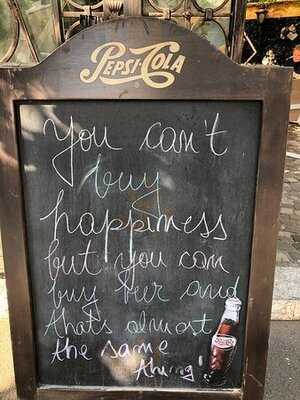 PEPSI-COLA
You can't
buy
happiness
but you can
buy beer and
thats almost
the same
thing!